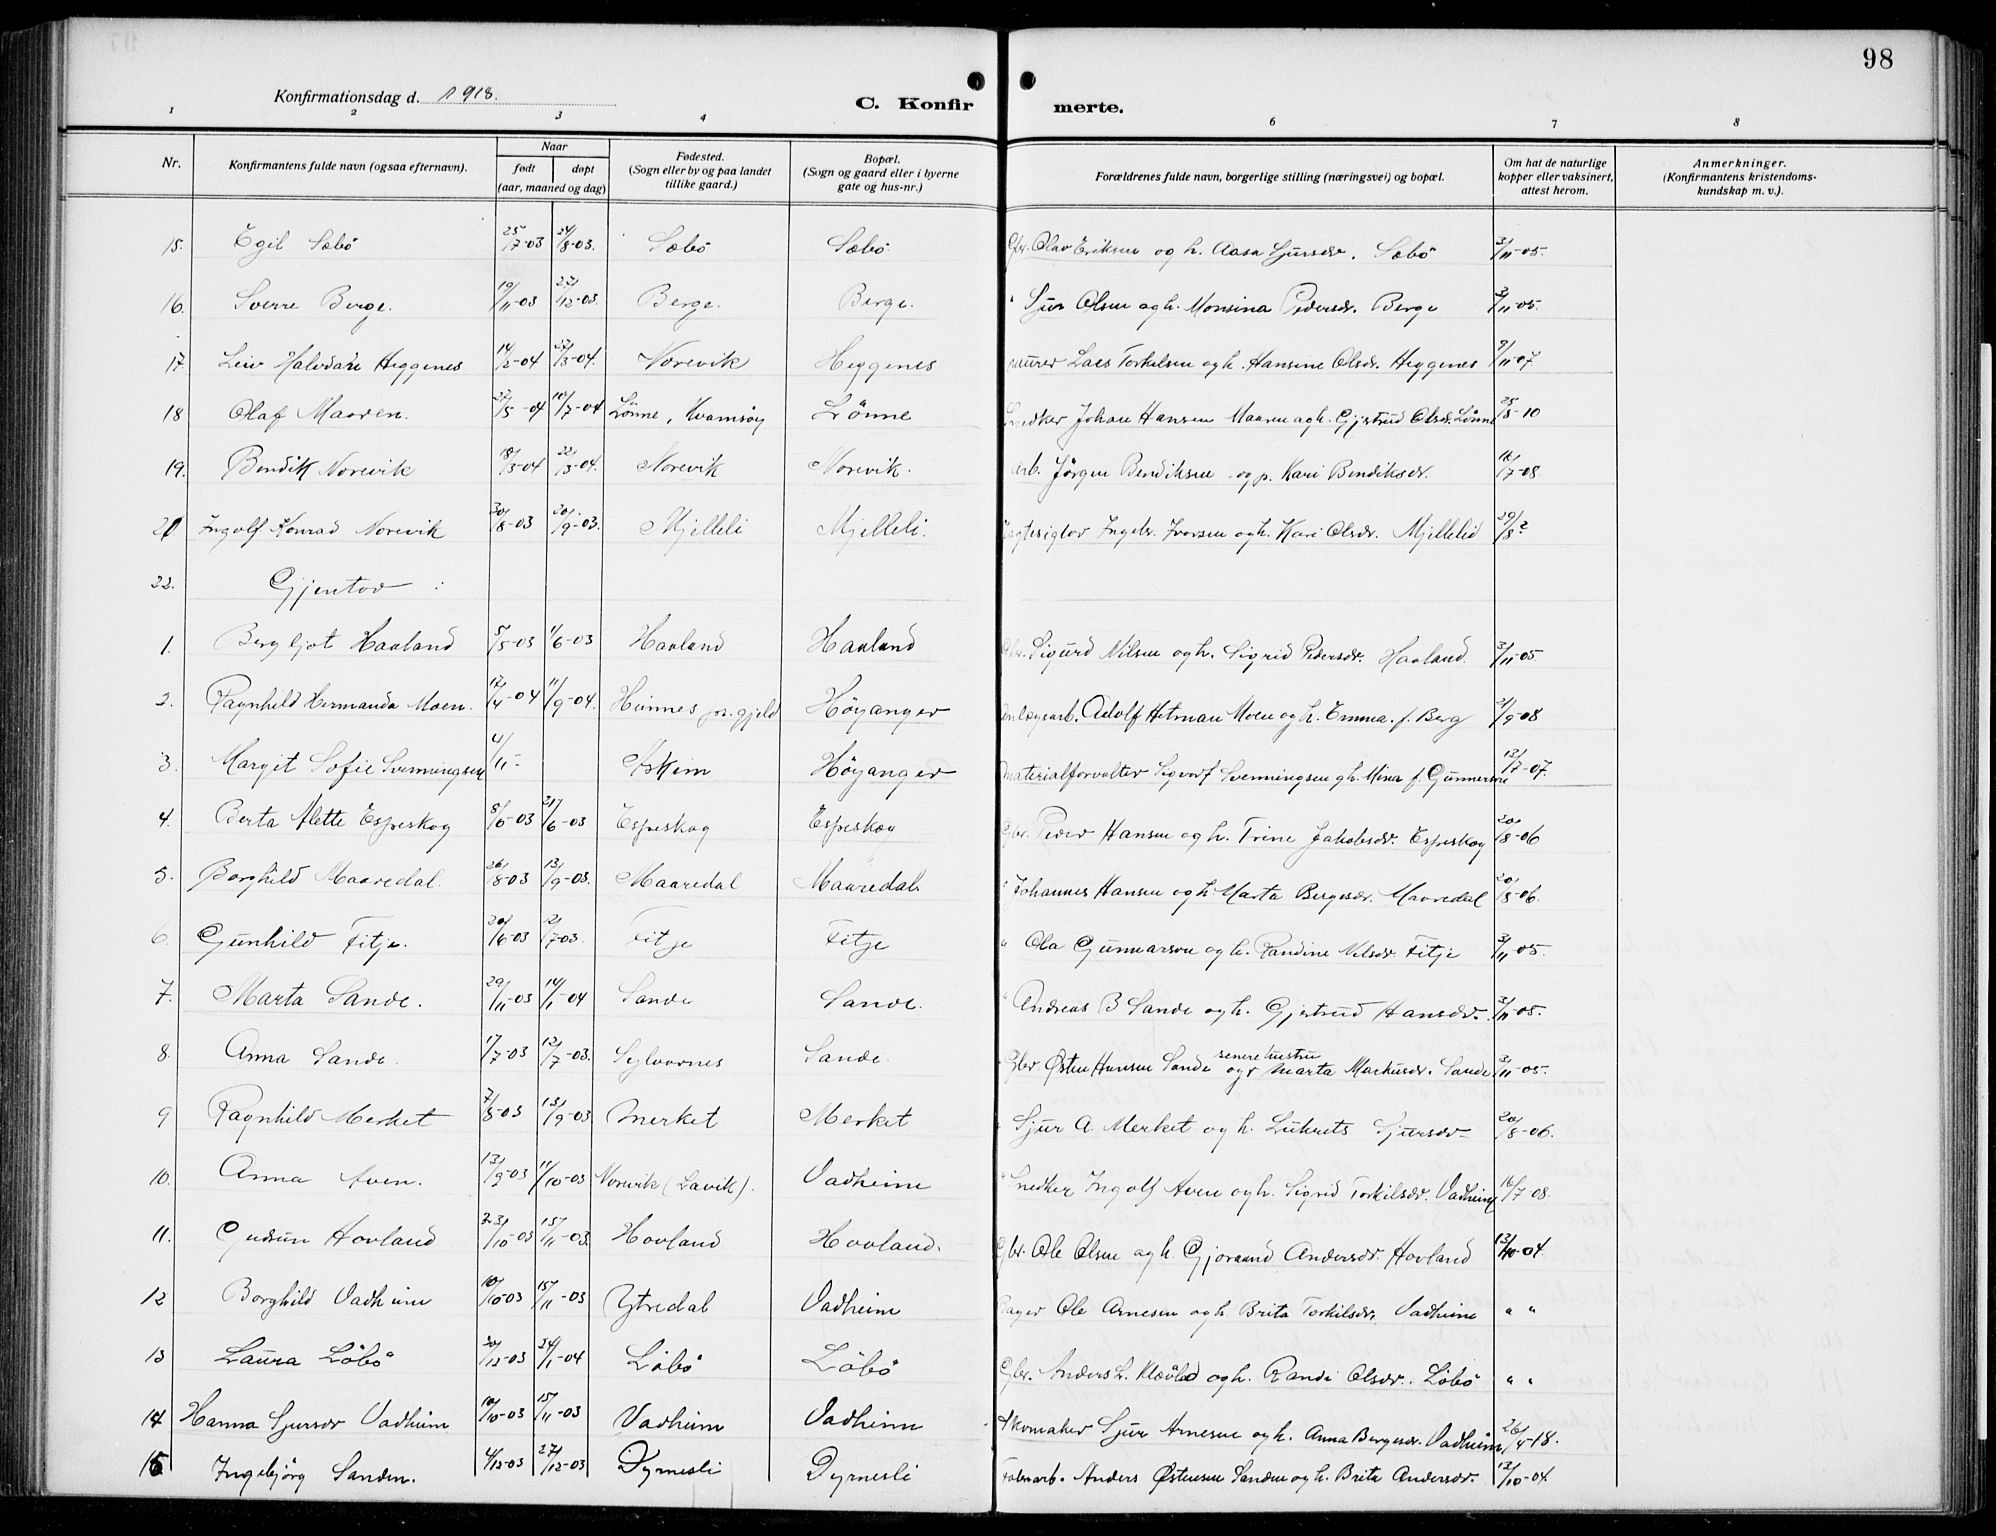 98
Konfirmationsdag d. 1918.
C. Konfir merte.
1 2 3 4 6 7 8
Nr. Konfirmantens fulde navn (ogsaa efternavn). Naar født døpt (aar, maaned og dag) Fødested. (Sogn eller by og paa landet tillike gaard.) Bopæl. (Sogn og gaard eller i byerne gate og hus-nr.) Forældrenes fulde navn, borgerlige stilling (næringsvei) og bopæl. Om hat de naturlige kopper eller vaksinert, attest herom. Anmerkninger. (Konfirmantens kristendoms-kundskap m. v.).
15. Egil Sæbö 25/7-03 24/8-03. Sæbö Sæbö. Gbr. Olav Eriksen og h. Aasa Sjursdr. Sæbö 3/11-05.
16. Sverre Berge. 19/11-03 Berge. Berge. " Sjur Olsen og h. Monsina Pedersdr. Berge 3/11-05.
17. Heggenes 14/2-04 Norevik Heggenes murer Lars Torkelsen og h. Hansine Olsdr. Heggenes 9/11-07.
18 Olaf Maaren. 27/5-04 10/7-04 Lönne, Kvamsöy Lönne Snedker Johan Hansen Maaren og h. Gjertrud Olsdr. Lönne 25/8-10
19. Bendik Norevik 18/3-04 Norevik Norevik. arb. Jörgen Bendiksen og p. Kari Bendiksdr. 7-08.
21 Ingolf Konrad Norevik 30/8-03 20/9-03. Mjelleli Mjelleli. Ingebr. Iversen og h. Kari Olsdr. Mjellelid 29/8 ?
22. Gjentor :
1. Bergljot Haaland 5/5-03 1/6-03 Haaland Haaland Gbr. Sigurd Nilsen og h. Sigrid Pedersdr. Haaland. 3/11-05.
2. Ragnhild Hermanda Moen. 17/4-04 11/9-04. Höyanger anlægsarb. Adolf Hitman Moen og h. Emma f. Berg 9-08
3. Margit Sofie Svenningsen 4/11- Askim Höyanger materialforvalter Sigvart Svenningsen og h. Mina f. Gunnersen 13/7-07.
4. Berta Alette Espeskog 8/5-03 21/6-03 Espeskog Espeskog Gbr. Peder Hansen og h. Trine Jakobsdr. Espeskog 20/8-06
5. Borghild Maaredal. 26/8-03 13/9-03. Maaredal Maaredal " Johannes Hansen og h. Marta Bergesdr. Maaredal 20/8-06.
6. Gunhild Fitje. 20/6-03 12/7-03. Fitje Fitje " Ola Gunnarson og h. Randine Nilsdr. Fitje 3/11-05.
7. Marta Sande. 29/11-03 14/1-04 Sande Sande. " Andreas B Sande og h. Gjertrud Hansdr. 3/11-05.
8. Anna Sande. 1/7-03 12/7-03. Sylvarnes Sande. Gbr Østen Hansen Sande og senere hustru Marta Markusdr. Sande 3/11-05.
9 Ragnhild Merket 7/8-03 13/9-03 Merket Merket " Sjur A. Merket og h. Sjursdr- 20/8-06.
10. Anna Aven. 13/9-03 11/10-03 Norevik (Lavik). Vadheim " Snedker Ingolf Aven og h. Sigrid Torkilsdr. Vadheim 16/7-08.
11. Gudrun Hovland 23/10-03 15/11-03. Hovland Hovland. Gbr. Ole Olsen og h. Gjoraand Andersdr. Hovland 13/10-04.
12 Borghild Vadheim 10/10-03 15/11-03 Ytredal Vadheim Bager Ole Arnesen og h. Brita Torkilsdr. Vadheim " "
13 Laura Löbö 30/12-03 24/1-04 Löbö Löbö Gbr. Anders L. og h. Randi Olsdr. Löbö " "
14 Hanna Sjursdr Vadheim 10/10-03 15/11-03 Vadheim Vadheim Skomaker Sjur Arnesen og h. Anna Bergesdr. Vadheim 26/4-18.
15 Ingebjörg Sanden. 4/12-03 27/12-03 Dyrnesli Dyrnesli Anders Østensen Sanden og h. Brite Andersdr. 13/10-04